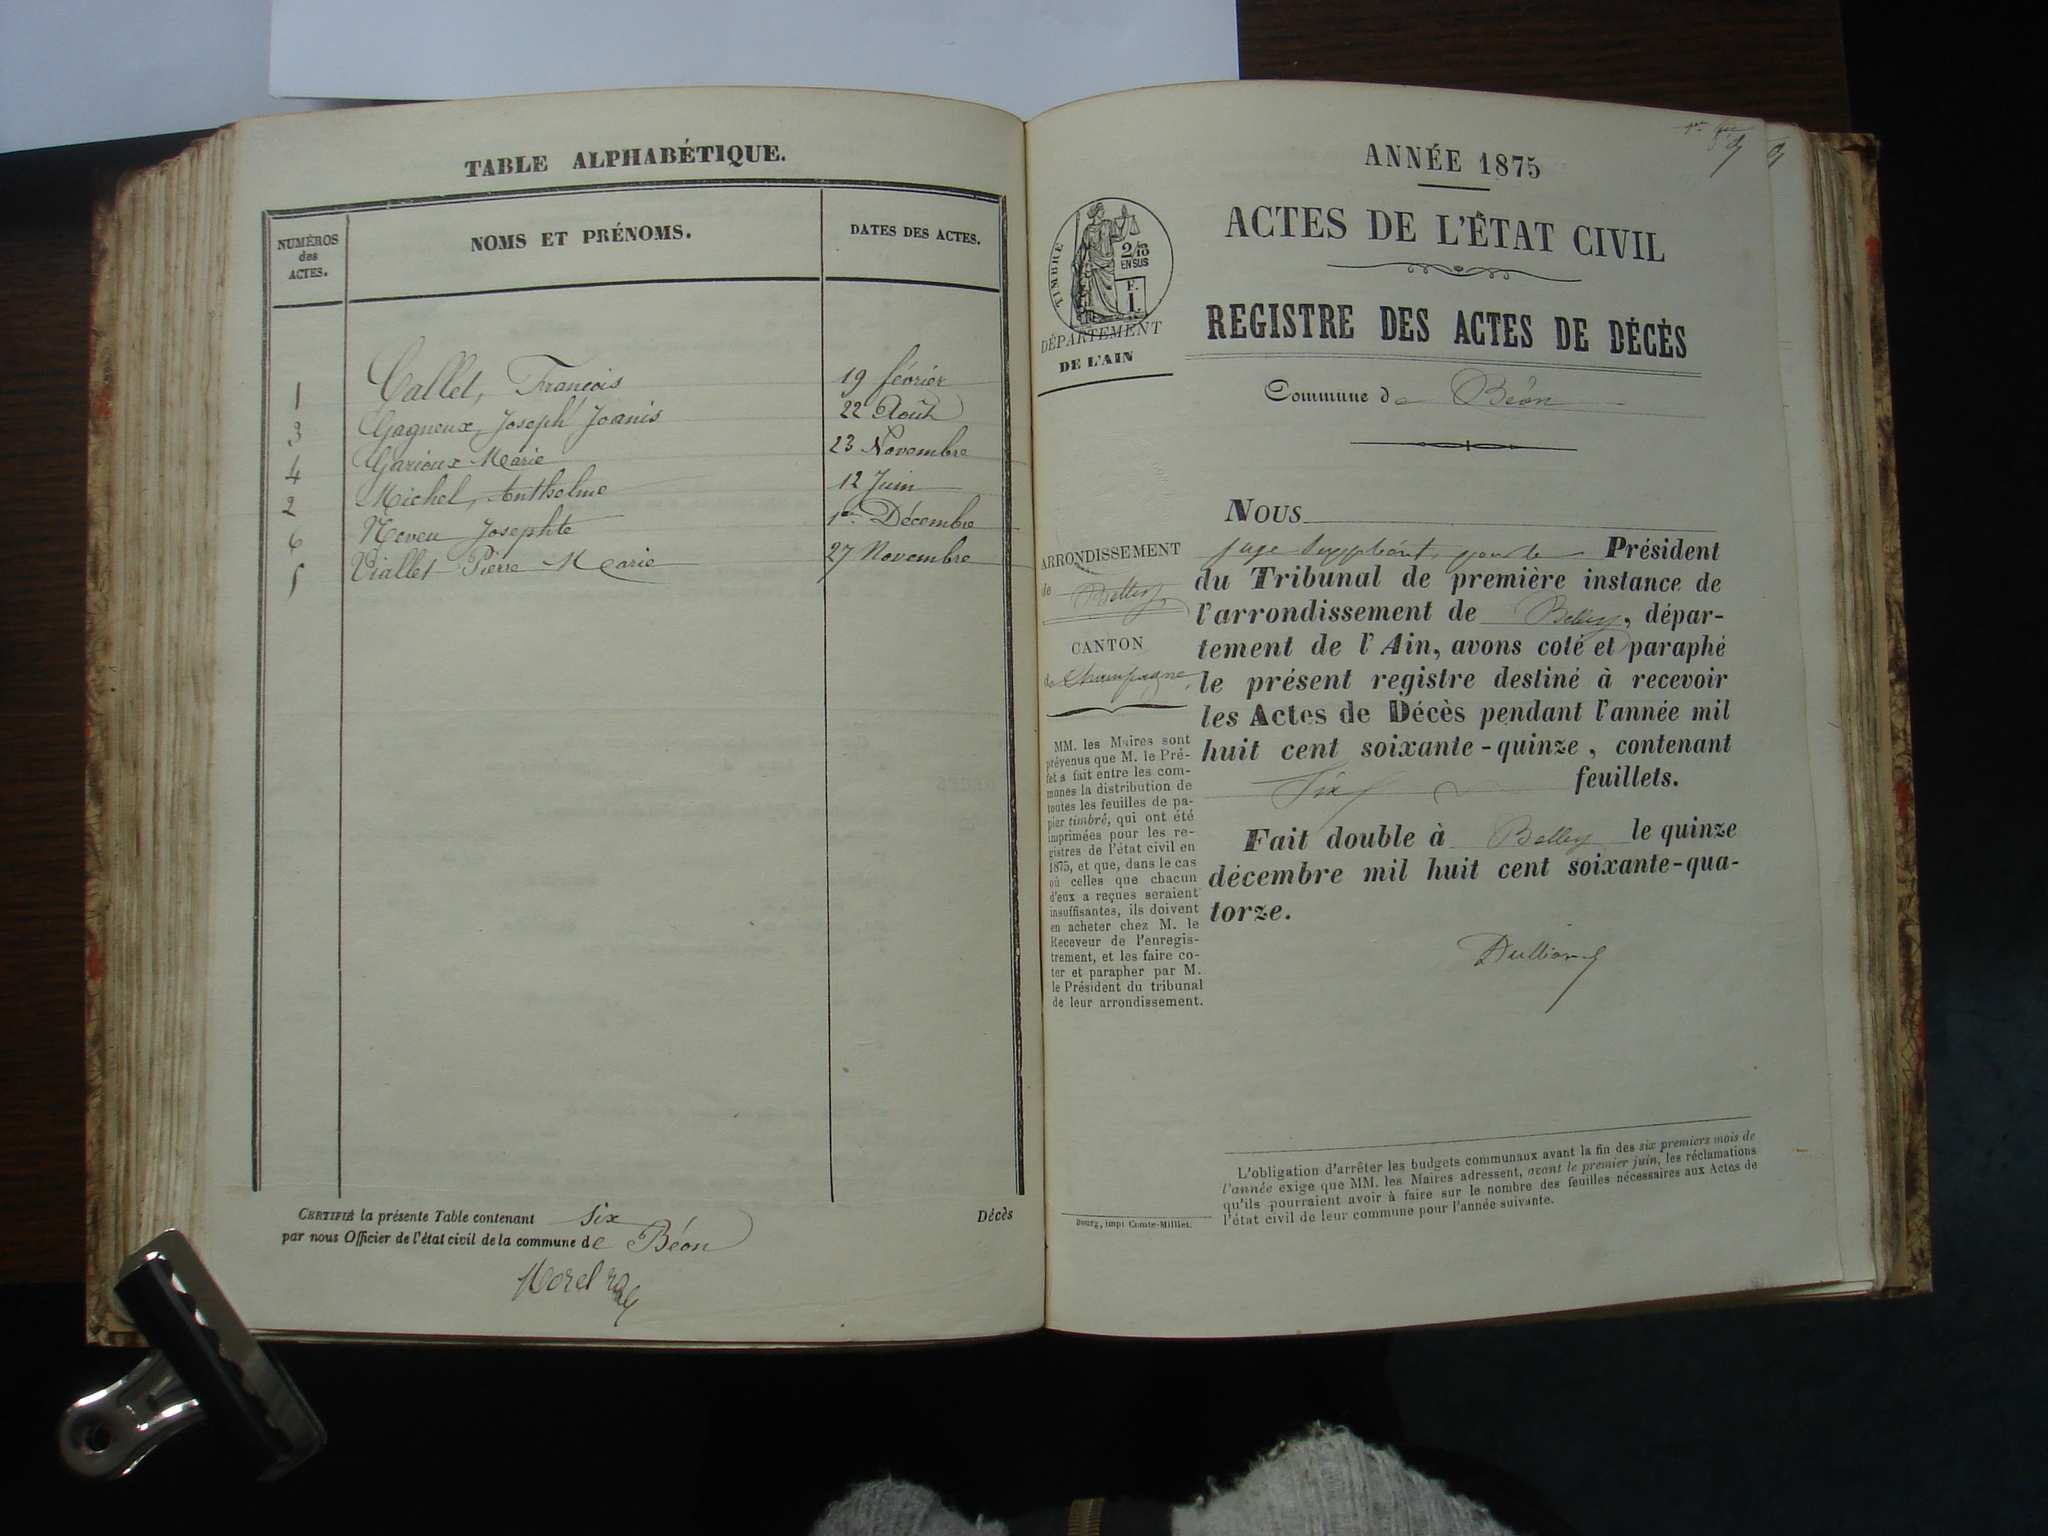 TABLE ALPHABÉTIQUE.
NUMÉROS des ACTES.
NOMS ET PRÉNOMS.
DATES DES ACTES.
1 Callet, François 19 février
3 Gagneux, Joseph Joanis 22 Août
4 Garioux Marie 23 Novembre
2 Michel, Anthelme 12 Juin
6 Neveu Josephte 1er Décembre
5 Viallet Pierre Marie 27 Novembre
CERTIFIÉ la présente Table contenant six Décès
par nous Officier de l'état civil de la commune de Béon
Morel
ANNÉE 1875
ACTES DE L'ÉTAT CIVIL
REGISTRE DES ACTES DE DÉCÈS
Commune de Béon
TIMBRE
2/10
EN SUS
F.
1.
DÉPARTEMENT
DE L'AIN
ARRONDISSEMENT
de Belley
CANTON
de Champagne
MM. les Maires sont
prévenus que M. le Pré-
fet a fait entre les com-
munes la distribution de
toutes les feuilles de pa-
pier timbré, qui ont été
imprimées pour les re-
gistres de l'état civil en
1875, et que, dans le cas
où celles que chacun
d'eux a reçues seraient
insuffisantes, ils doivent
en acheter chez M. le
Receveur de l'enregis-
trement, et les faire co-
ter et parapher par M.
le Président du tribunal
de leur arrondissement.
Bourg, imp. Comte-Milliet.
NOUS
juge suppléant pour le Président
du Tribunal de première instance de
l'arrondissement de Belley, dépar-
tement de l'Ain, avons coté et paraphé
le présent registre destiné à recevoir
les Actes de Décès pendant l'année mil
huit cent soixante-quinze, contenant
Six feuillets.
Fait double à Belley le quinze
décembre mil huit cent soixante-qua-
torze.
L'obligation d'arrêter les budgets communaux avant la fin des six premiers mois de
l'année exige que MM. les Maires adressent, avant le premier juin, les réclamations
qu'ils pourraient avoir à faire sur le nombre des feuilles nécessaires aux Actes de
l'état civil de leur commune pour l'année suivante.